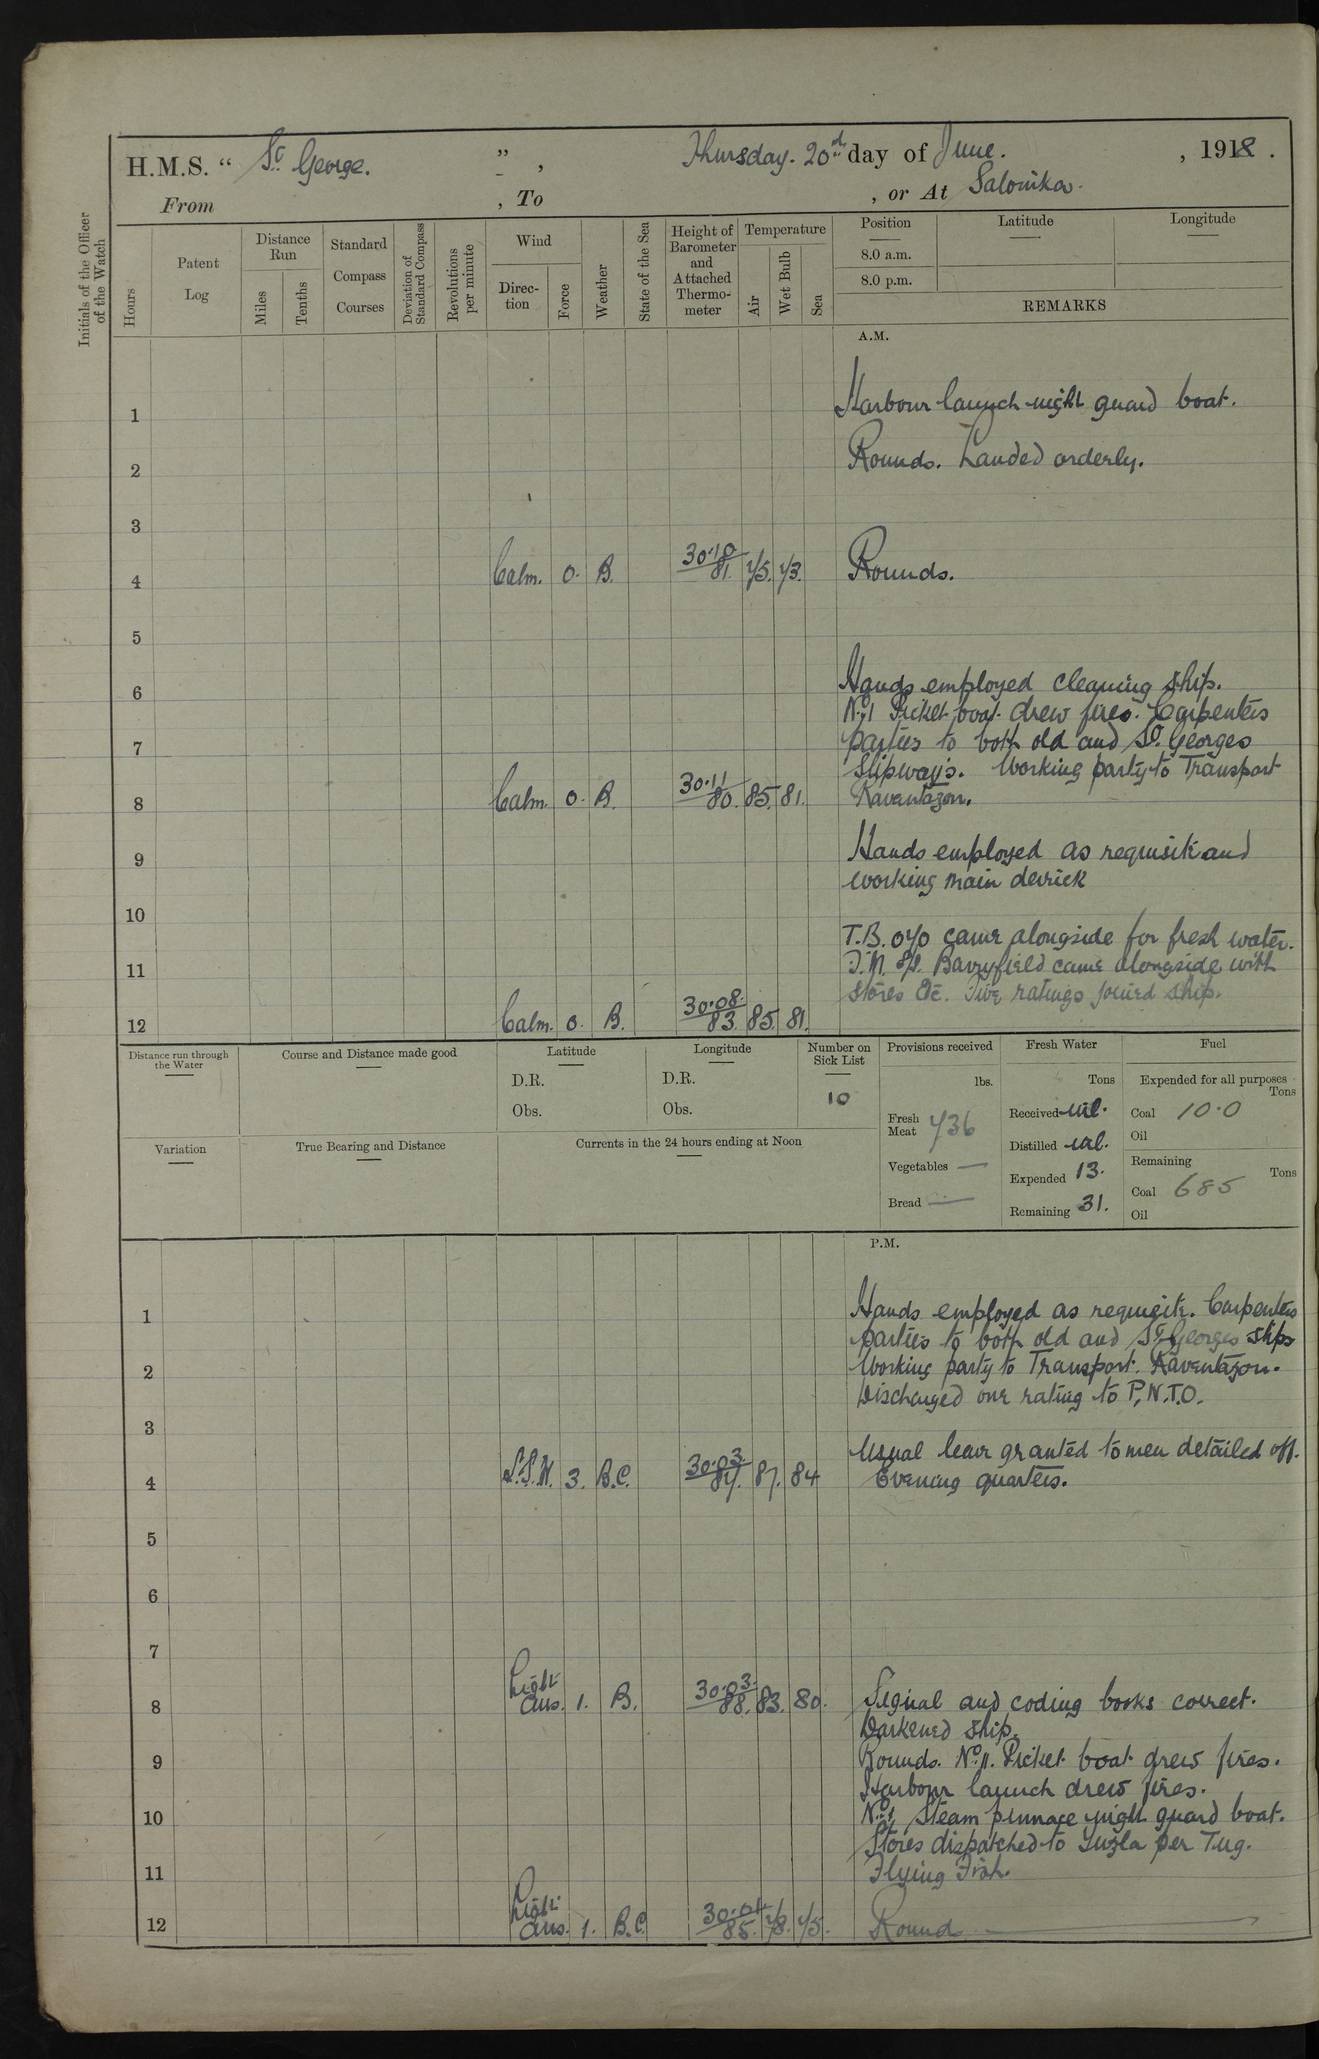 H.M.S. “ St George. ” , Thursday. 20d day of June. , 1918 .
From , To , or At Salonika.
Initials of the Officer of the Watch
Hours
Patent Log
Distance Run
Miles
Tenths
Standard Compass Courses
Deviation of Standard Compass
Revolutions per minute
Wind
Direction
Force
Weather
State of the Sea
Height of Barometer and Attached Thermometer
Temperature
Air
Wet Bulb
Sea
Position
8.0 a.m.
8.0 p.m.
Latitude
Longitude
REMARKS
A.M.
1 Harbour launch night guard boat.
2 Rounds. Landed orderly.
3
4 Calm. 0. B. 30.10 81. 75. 73. Rounds.
5
6 Hands employed cleaning ship.
No 1 Picket boat drew fires. Carpenters
7 parties to both old and St. Georges
Slipways. Working party to Transport
8 Calm. 0. B. 30.11 80. 85. 81. Raventazon.
9 Hands employed as requisite and
working main derrick
10
T.B. 070 came alongside for fresh water.
11 Barryfield came alongside with
stores Etc. Five ratings joined ship.
12 Calm. 0. B. 30.08. 83. 85. 81.
Distance run through the Water
Course and Distance made good
Latitude
D.R.
Obs.
Longitude
D.R.
Obs.
Number on Sick List
10
Provisions received
lbs.
Fresh Meat 736
Vegetables —
Bread —
Fresh Water
Tons
Received nil.
Distilled nil.
Expended 13.
Remaining 31.
Fuel
Expended for all purposes
Tons
Coal 10.0
Oil
Remaining
Tons
Coal 685
Oil
Variation
True Bearing and Distance
Currents in the 24 hours ending at Noon
P.M.
1 Hands employed as requisite. Carpenters
parties to both old and St. Georges slips
2 Working party to Transport. Raventazon.
Discharged one rating to P.N.T.O.
3
Usual leave granted to men detailed off.
4 S.S.W. 3. B.C. 30.03. 87. 87. 84 Evening quarters.
5
6
7
8 Light airs. 1. B. 30.03. 88. 83. 80. Signal and coding books correct.
Darkened ship.
9 Rounds. No. 1. Picket boat drew fires.
Harbour launch drew fires.
10 No 1 Steam pinnace night guard boat.
Stores dispatched to Tuzla per Tug.
11 Flying Fish.
12 Light airs. 1. B.C. 30.01. 85. 78. 75. Round